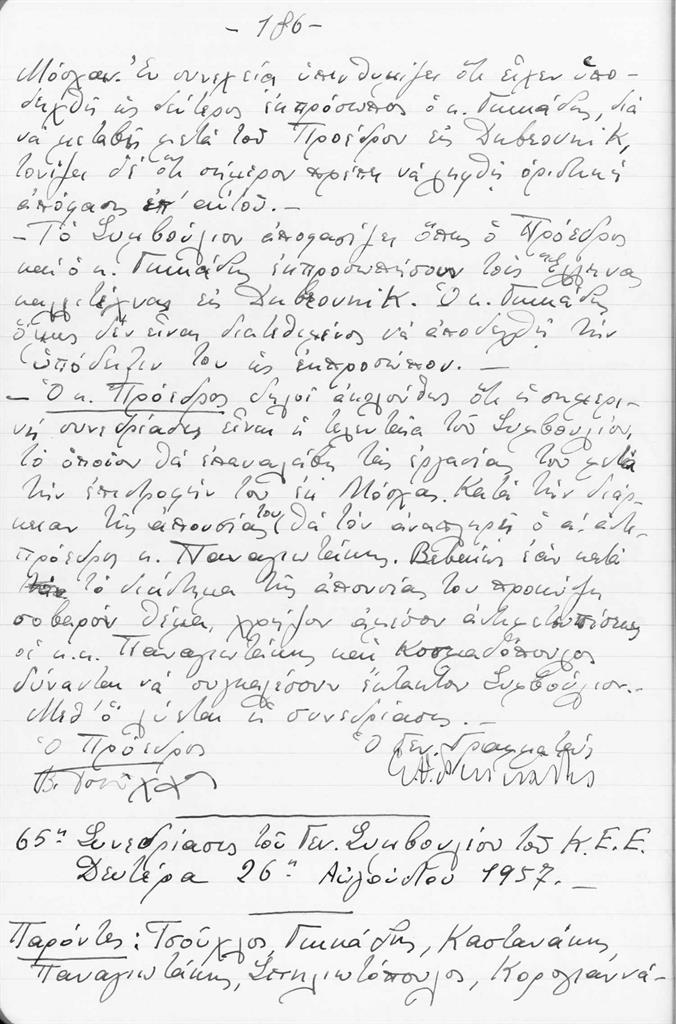 - 186 -
Μόσχαν. Ἐν συνεχείᾳ ὑπενθυμίζει ὅτι εἶχεν ὑπο-
δειχθῆ ὡς δεύτερος ἐκπρόσωπος ὁ κ. Γιωκάδης, διὰ
νὰ μεταβῇ μετὰ τοῦ Προέδρου εἰς Dubrovnik,
τονίζει δὲ ὅτι σήμερον πρέπει νὰ ληφθῇ ὁριστικὴ
ἀπόφασις ἐπ' αὐτοῦ. —
- Τὸ Συμβούλιον ἀποφασίζει ὅπως ὁ Πρόεδρος
καὶ ὁ κ. ἐκπροσωπήσουν τοὺς Ἕλληνας
καλλιτέχνας εἰς Dubrovnik. Ὁ κ.
ὅμως δὲν εἶναι διατεθειμένος νὰ ἀποδεχθῇ τὴν
ὑπόδειξίν του ὡς ἐκπροσώπου. —
- Ὁ κ. Πρόεδρος δηλοῖ ἀκολούθως ὅτι ἡ σημερι-
νὴ συνεδρίασις εἶναι ἡ τελευταία τοῦ Συμβουλίου,
τὸ ὁποῖον θὰ ἐπαναλάβῃ τὰς ἐργασίας του μετὰ
τὴν ἐπιστροφήν του ἐκ Μόσχας. Κατὰ τὴν διάρ-
κειαν τῆς ἀπουσίας του θὰ τὸν ἀναπληροῖ ὁ α! ἀντι-
πρόεδρος κ. Παναγιωτάκης. Βεβαίως ἐὰν κατὰ
τὸ διάστημα τῆς ἀπουσίας του προκύψῃ
σοβαρὸν θέμα, χρῆζον ἀμέσου ἀντιμετωπίσεως
οἱ κ.κ. Παναγιωτάκης καὶ Κοσμαδόπουλος
δύνανται νὰ συγκαλέσουν ἔκτακτον Συμβούλιον.-
Μεθ' ὃ λύεται ἡ συνεδρίασις. —
Ὁ Πρόεδρος Ὁ Γεν. Γραμματεὺς
65η Συνεδρίασις τοῦ Γεν. Συμβουλίου τοῦ Κ.Ε.Ε.
Δευτέρα 26η Αὐγούστου 1957. —
Παρόντες: Τσοῦχλος, Καστανάκης,
Παναγιωτάκης, Σπηλιωτόπουλος, Κορογιαννά-